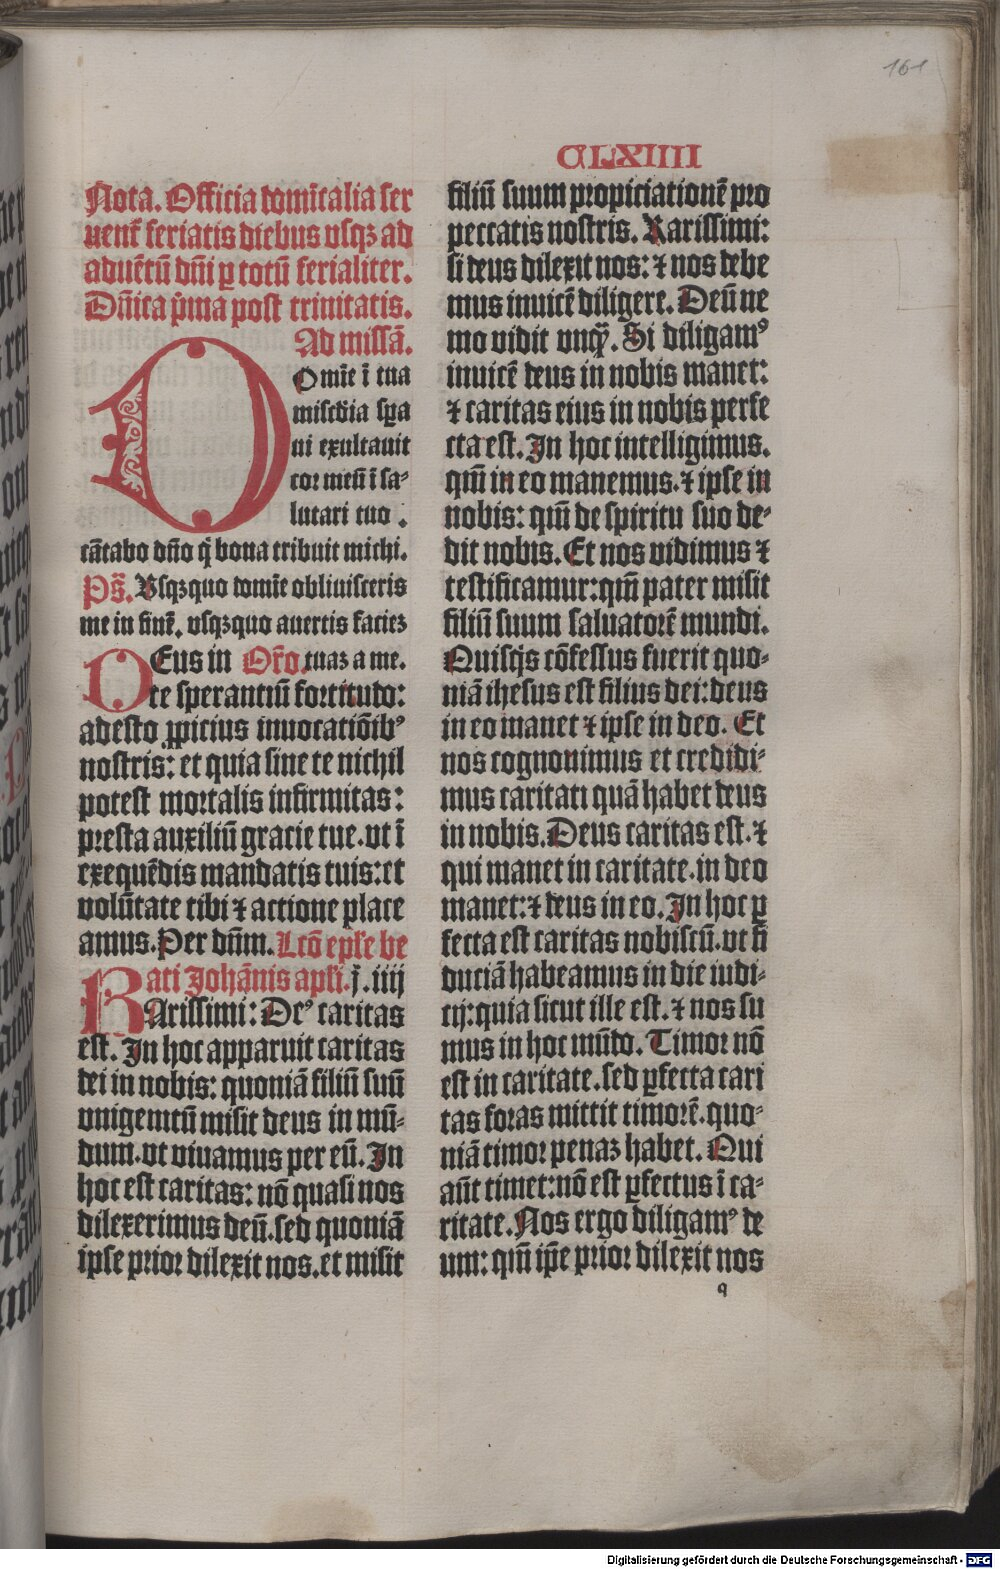 161
CLXIIII
Nota. Officia domīcalia ser
uent᷑ feriatis diebus vsqꝫ ad
aduētū dn̄i ꝑ totū ferialiter.
Dn̄ica p̄ma post trinitatis.
Ad missā.
Domīe ī tua
miſcḋia spa
ui exultauit
cor meū ī sa⸗
lutari tuo .
cātabo dn̄o q̇ bona tribuit michi.
Ps̄. Vsqꝫquo domīe obliuisceris
me in finē. vsqꝫquo auertis faciez
DEus in Or̄o. tuaꝫ a me.
te sperantiū fortitudo:
adesto ꝓpicius inuocatiōibꝰ
nostris: et quia sine te nichil
potest mortalis infirmitas:
presta auxiliū gracie tue. vt ī
exequēdis mandatis tuis: et
volūtate tibi ⁊ actione place
amus. Per dn̄m. Lc̄o ep̄le be
ati Johānis apl̄i. j. iiij
KArissimi: Dcꝰ caritas
est. In hoc apparuit caritas
dei in nobis: quoniā filiū suū
vnigenitū misit deus in mū⸗
dum. vt viuamus per eū. In
hoc est caritas: nō quasi nos
dilexerimus deū. sed quoniā
ipse prior dilexit nos. et misit
filiū suum propiciationē pro
peccatis nostris. Karissimi:
si deus dilexit nos: ⁊ nos debe
mus inuicē diligere. Deū ne
mo vidit vnqꝫ. Si diligamꝰ
inuicē deus in nobis manet:
⁊ caritas eius in nobis perfe
cta est. In hoc intelligimus.
qm̄ in eo manemus. ⁊ ipse in
nobis: qm̄ de spiritu suo de⸗
dit nobis. Et nos vidimus ⁊
testificamur: qm̄ pater misit
filiū suum saluatorē mundi.
Quisq̇s cōfessus fuerit quo⸗
niā ihesus est filius dei: deus
in eo manet ⁊ ipse in deo. Et
nos cognouimus et credidi⸗
mus caritati quā habet deus
in nobis. Deus caritas est. ⁊
qui manet in caritate. in deo
manet: ⁊ deus in eo. In hoc ꝑ
fecta est caritas nobiscū. vt fi
duciā habeamus in die iudi⸗
cij: quia sicut ille est. ⁊ nos su
mus in hoc mūdo. Timor nō
est in caritate. sed ꝑfecta cari
tas foras mittit timorē. quo⸗
niā timor penaꝫ habet. Qui
aūt timet: nō est ꝑfectus ī ca⸗
ritate. Nos ergo diligamꝰ de
um: qm̄ ip̄e prior dilexit nos
q
Digitalisierung gefördert durch die Deutsche Forschungsgemeinschaft - DFG